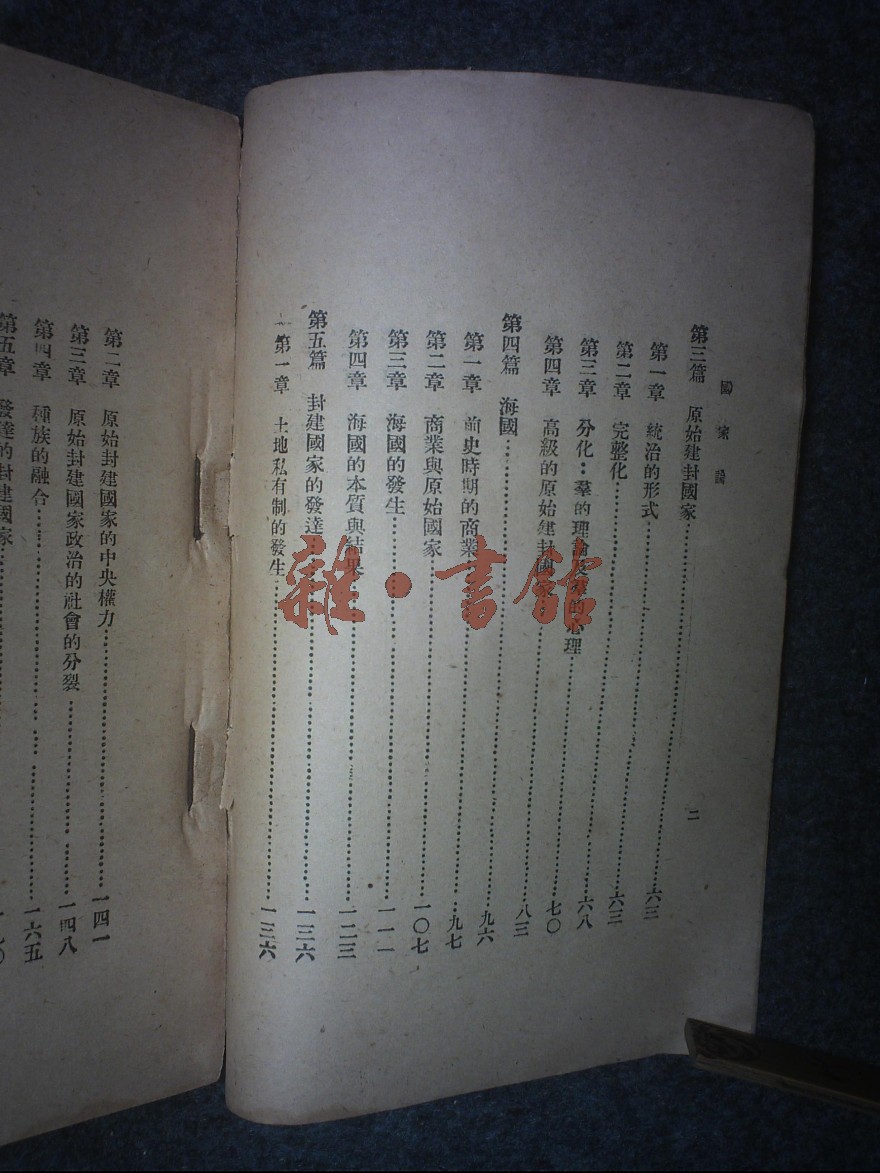 國家論
二
第三篇 原始建封國家……六三
第一章 統治的形式……六三
第二章 完整化……六八
第三章 分化：羣的理論及羣的心理……七〇
第四章 高級的原始建封國家……八三
第四篇 海國……九六
第一章 前史時期的商業……九七
第二章 商業與原始國家……一〇七
第三章 海國的發生……一一一
第四章 海國的本質與結果……一二三
第五篇 封建國家的發達……一三六
第一章 土地私有制的發生……一三六
第二章 原始封建國家的中央權力……一四一
第三章 原始封建國家政治的社會的分裂……一四八
第四章 種族的融合……一六五
第五章 發達的封建國家……
雜·書館